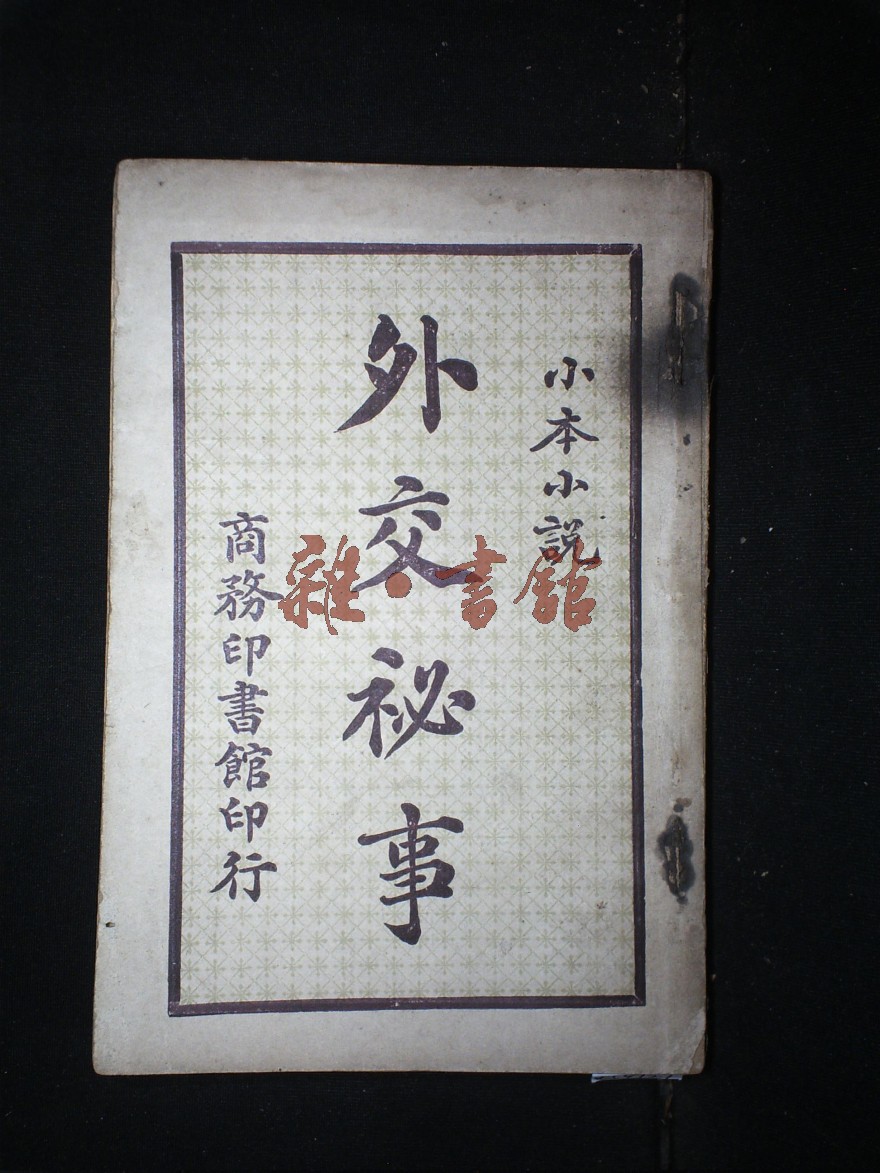 小本小説
外交祕事
商務印書館印行
雜·書館